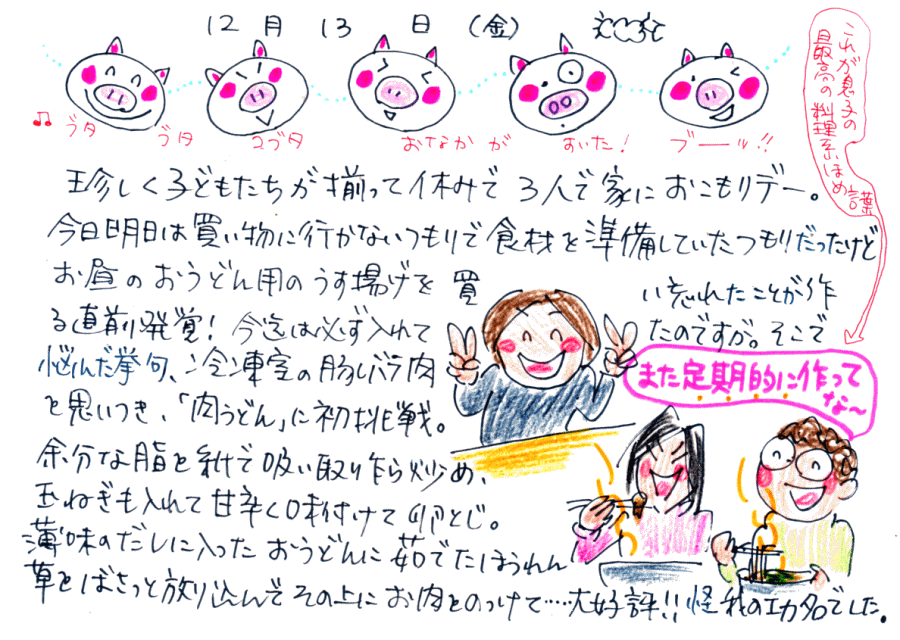 12月13日(金)
これが息子の
最高の料理系ほめ言葉
♫ブタ ブタ コブタ おなか が すいた! ブーッ!!
珍しく子どもたちが揃って休みで3人で家におこもりデー。
今日明日は買い物に行かないつもりで食材を準備していたつもりだったけど
お昼のおうどん用のうす揚げを買い忘れたことが作
る直前発覚!今迄は必ず入れてたのですが。そこで
悩んだ挙句、冷凍室の豚バラ肉
を思いつき、「肉うどん」に初挑戦。
また定期的に作って
な〜
余分な脂を紙で吸い取り作ら炒め、
玉ねぎも入れて甘辛く味付けて卵とじ。
薄味のだしに入ったおうどんに茹でたほうれん
草をばさっと放り込んでその上にお肉をのっけて……大好評!!怪我のエカ名でした。